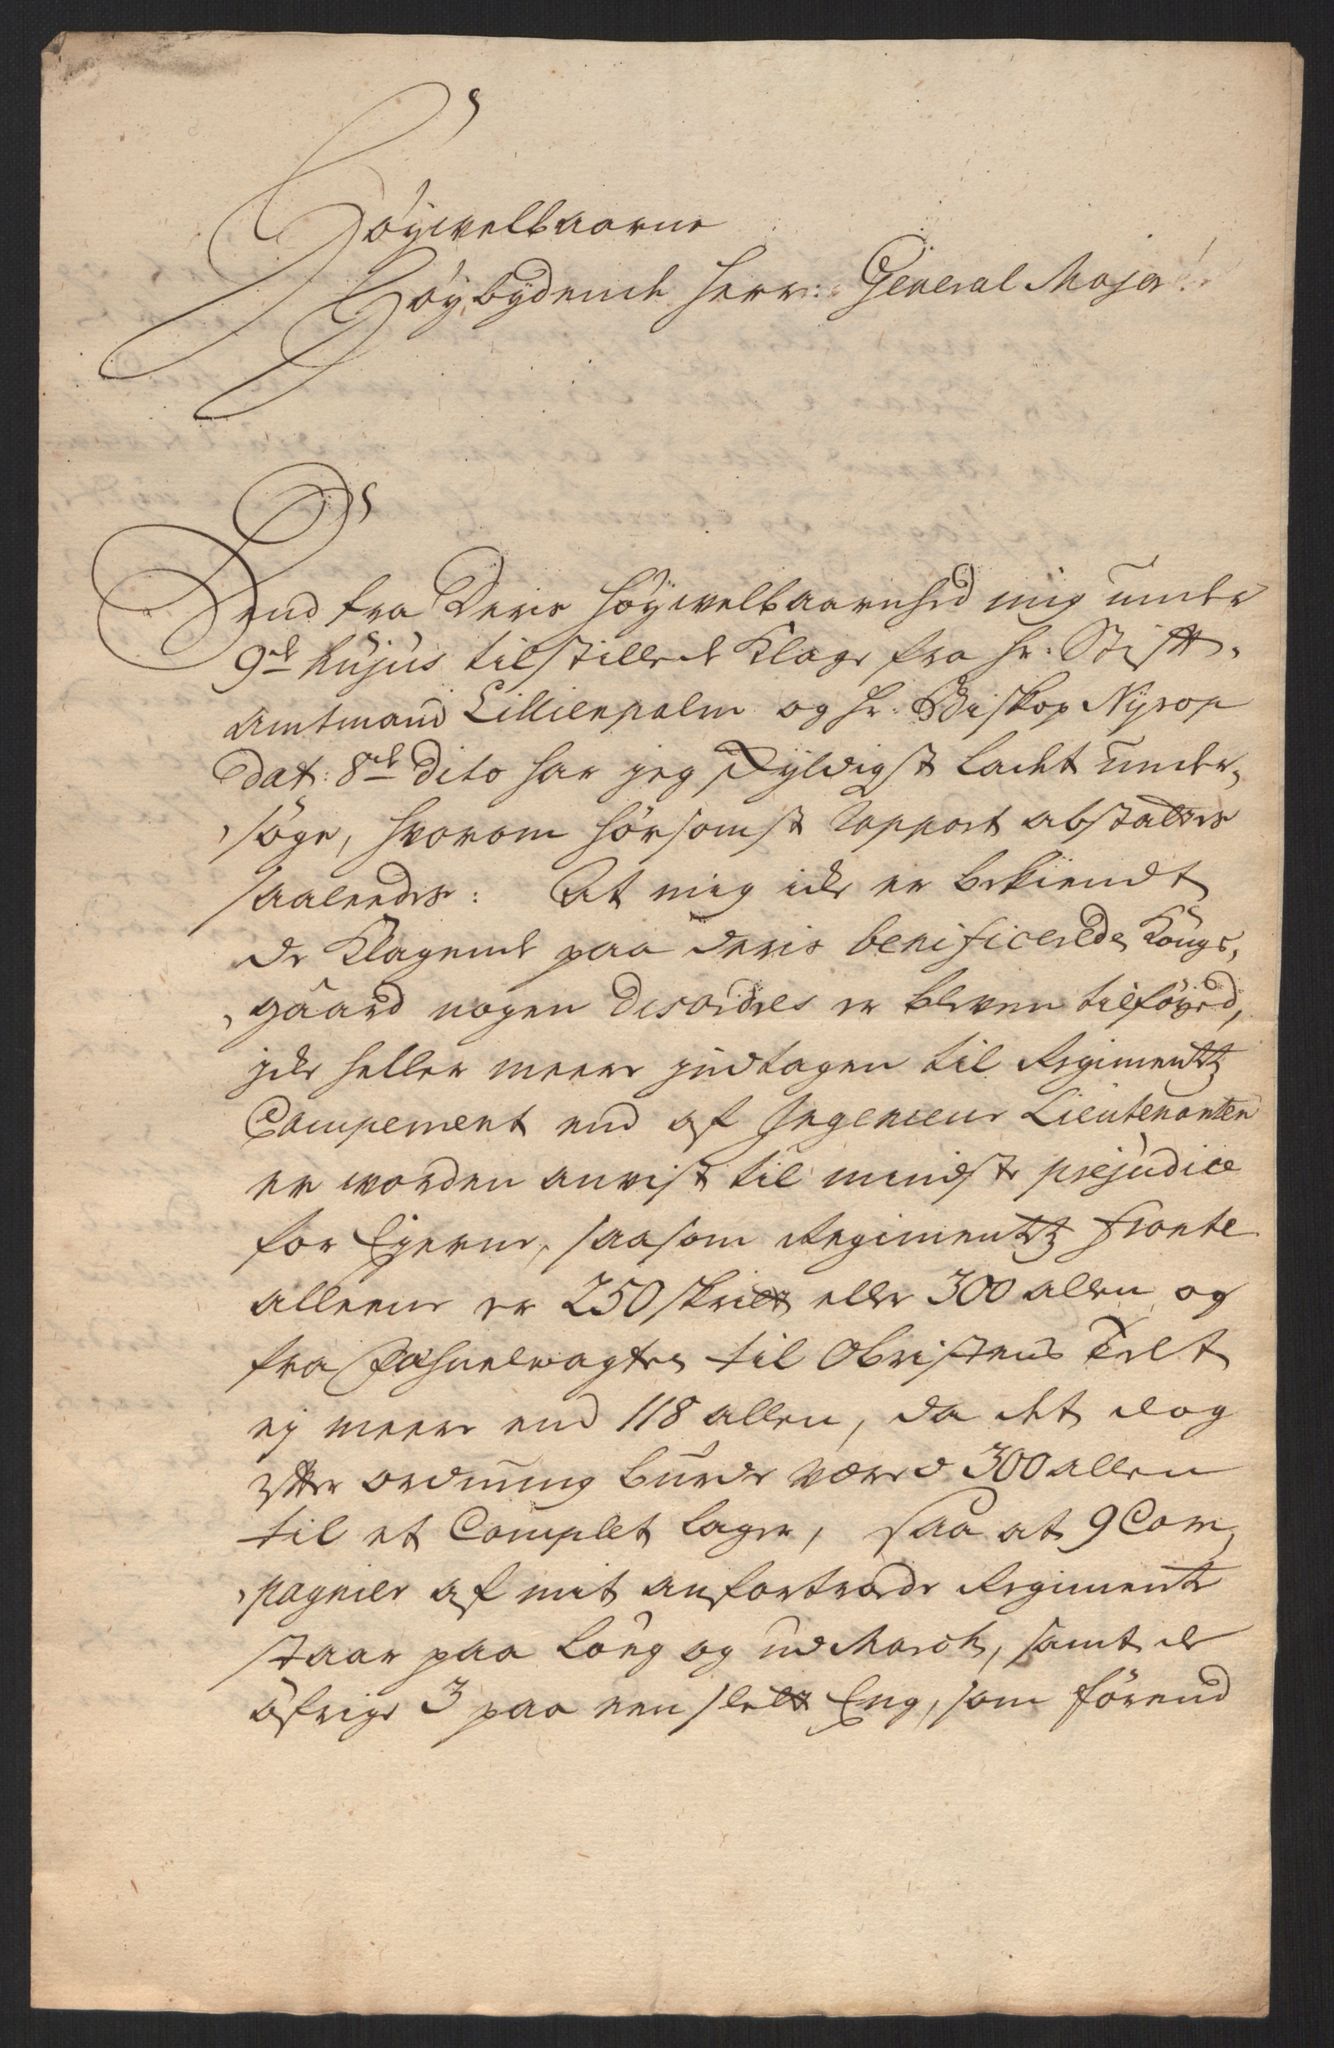 Höywelbaarne
Höybydende Herr: General Major
Dend fra Deris Höywelbaarenhed mig under
9de hujus tilstillede Klage fra Hr. Stift-
amtmand Lillienpalm og Hr. Biskop Nyrop
dat: 8de dito har jeg skyldigst ladet under-
söge, hvorom hörsomst Rapport abstattes
saaleedes: At mig icke er bekiendt
de Klagende paa deris benificerede Kongs-
gaard nogen Desordres er bleven tilföyed,
icke heller meere jndtagen til Regimentz
Campement end af Ingenieur Lieutenanten
er worden anvist til mindste prejudice
for Eyerne, saasom Regimentz Fronte
alleene er 250 skritt eller 300 allen og
fra Fahnewagten til Obristens Telt
ej meere end 118 allen, da det dog
efter ordning burde være 300 allen
til et Complet lager, saa at 9 Com-
pagnier af mit anfortroede Regiment
staar paa Long og ud March, samt de
öfrige 3 paa een slett Eng, som förend